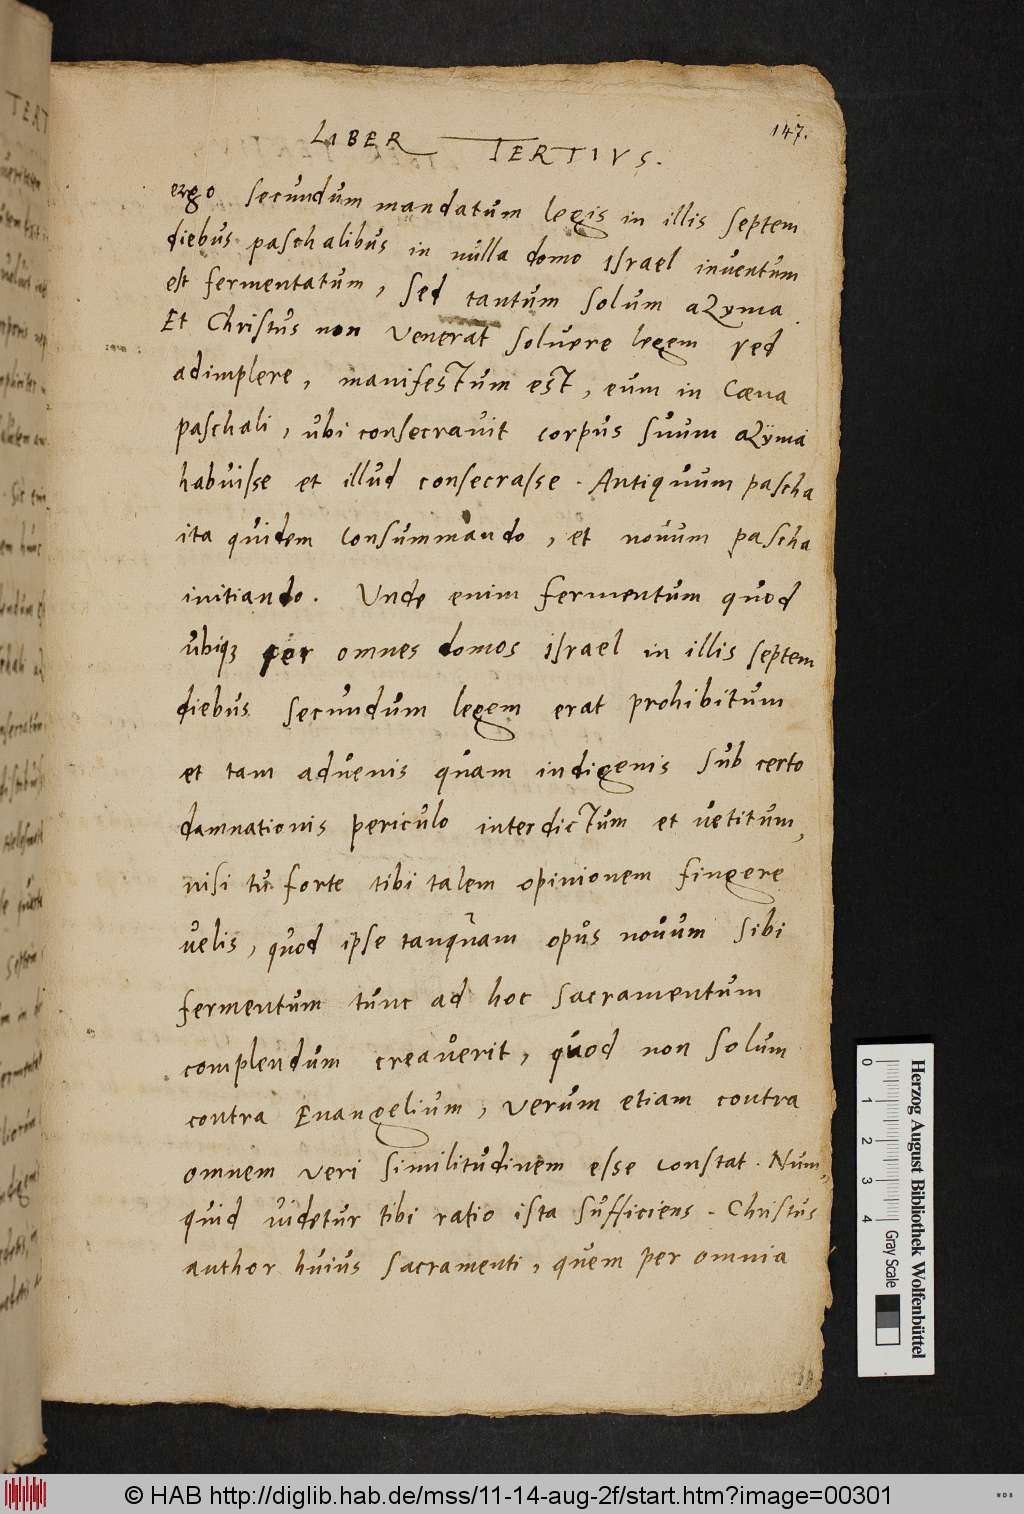 LIBER TERTIVS.
147.
ergo secundum mandatum legis in illis septem
diebus paschalibus in nulla domo israel inventum
est fermentatum, sed tantum solum aZyma.
Et Christus non venerat solvere legem sed
adimplere, manifestum est, eum in Cœna
paschali, ubi consecravit corpus suum aZyma
habuisse et illud consecrasse. Antiquum pascha
ita quidem consummando, et novum pascha
initiando. Unde enim fermentum quod
ubiqꝫ per omnes domos israel in illis septem
diebus secundum legem erat prohibitum
et tam advenis quam indigenis sub certo
damnationis periculo interdictum et vetitum,
nisi tu forte tibi talem opinionem fingere
velis, quod ipse tanquam opus novum sibi
fermentum tunc ad hoc sacramentum
complendum creaverit, quod non solum
contra Evangelium, verum etiam contra
omnem veri similitudinem esse constat. Num,
quid videtur tibi ratio ista sufficiens. Christus
author huius sacramenti, quem per omnia
Herzog August Bibliothek Wolfenbüttel
0 1 2 3 4
Gray Scale
© HAB http://diglib.hab.de/mss/11-14-aug-2f/start.htm?image=00301